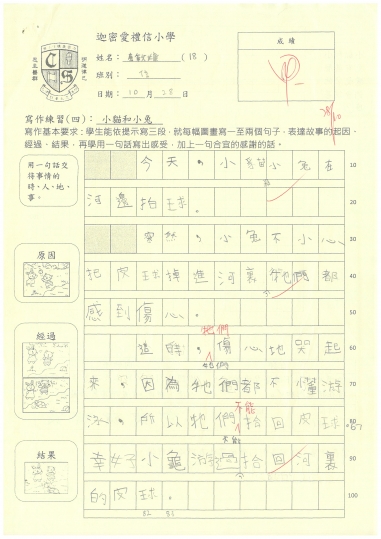 迦密愛禮信小學
姓名： (18)
班別： 信
日期： 10 月 28 日
成績
甲
28/10
寫作練習(四)： 小貓和小兔
寫作基本要求：學生能依提示寫三段，就每幅圖畫寫一至兩個句子，表達故事的起因、
經過、結果，再學用一句話寫出感受，加上一句合宜的感謝的話。
用一句話交
待事情的
時、人、地、
事。
今天，小貓小兔在 10
河邊拍球。 20
突然，小兔不小心 30
把皮球掉進河裏 牠們都 40
感到傷心。 50
牠們
這時，傷心地哭起 60
來，因為牠們都不懂游 70
不能
泳，所以牠們拾回皮球。 80
幸好小龜游過拾回河裏 90
的皮球。 100
原因
經過
結果